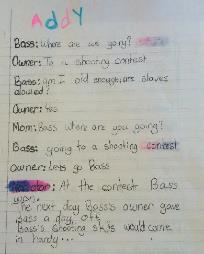 Addy
Bass: where are we going?
Owner: To a shooting contest
Bass: am I old enough, are slaves
alowed?
Owner: Yes
Mom: Bass where are you going?
Bass: going to a shooting contest
Owner: Lets go Bass
At the contest Bass
won.
The next day Bass's owner gave
Bass a day off
Bass's shooting skills would come
in handy...